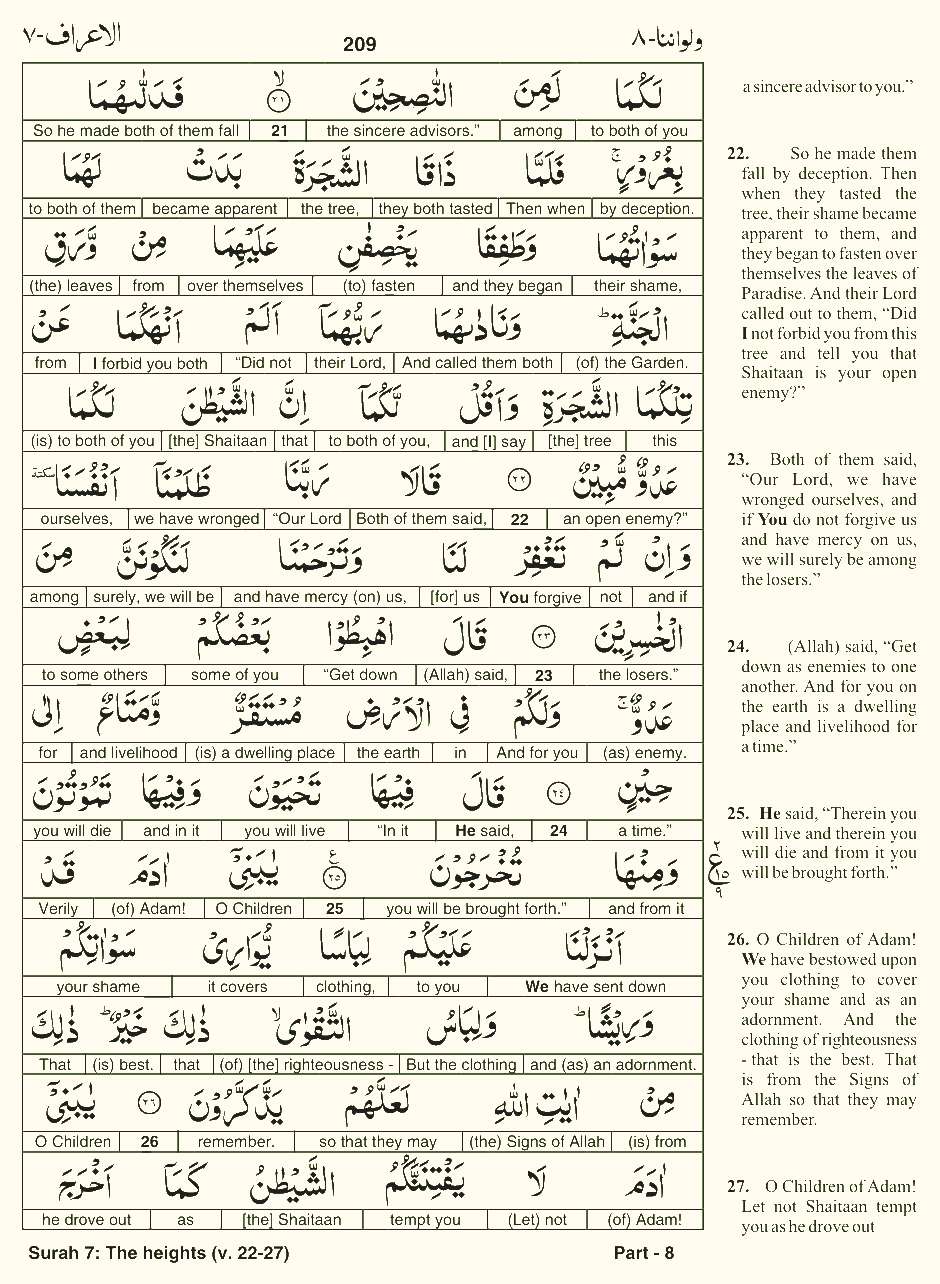 الاعراف-۷ 209 ولواننا-۸
لَكُمَا لَمِنَ النّٰصِحِيْنَ ۲۱ فَدَلّٰىهُمَا
So he made both of them fall 21 the sincere advisors.” among to both of you
بِغُرُوْرٍ فَلَمَّا ذَاقَا الشَّجَرَةَ بَدَتْ لَهُمَا
to both of them became apparent the tree, they both tasted Then when by deception.
سَوْاٰتُهُمَا وَطَفِقَا يَخْصِفٰنِ عَلَيْهِمَا مِنْ وَّرَقِ
(the) leaves from over themselves (to) fasten and they began their shame,
الْجَنَّةِ وَنَادٰىهُمَا رَبُّهُمَآ اَلَمْ اَنْهَكُمَا عَنْ
from I forbid you both “Did not their Lord, And called them both (of) the Garden.
تِلْكُمَا الشَّجَرَةِ وَاَقُلْ لَّكُمَآ اِنَّ الشَّيْطٰنَ لَكُمَا
(is) to both of you [the] Shaitaan that to both of you, and [I] say [the] tree this
عَدُوٌّ مُّبِيْنٌ ۲۲ قَالَا رَبَّنَا ظَلَمْنَآ اَنْفُسَنَا سكتة
ourselves, we have wronged “Our Lord Both of them said, 22 an open enemy?”
وَاِنْ لَّمْ تَغْفِرْ لَنَا وَتَرْحَمْنَا لَنَكُوْنَنَّ مِنَ
among surely, we will be and have mercy (on) us, [for] us You forgive not and if
الْخٰسِرِيْنَ ۲۳ قَالَ اهْبِطُوْا بَعْضُكُمْ لِبَعْضٍ
to some others some of you “Get down (Allah) said, 23 the losers.”
عَدُوٌّ وَلَكُمْ فِي الْاَرْضِ مُسْتَقَرٌّ وَّمَتَاعٌ اِلٰى
for and livelihood (is) a dwelling place the earth in And for you (as) enemy.
حِيْنٍ ۲۴ قَالَ فِيْهَا تَحْيَوْنَ وَفِيْهَا تَمُوْتُوْنَ
you will die and in it you will live “In it He said, 24 a time.”
وَمِنْهَا تُخْرَجُوْنَ ۲۵ ع يٰبَنِيْٓ اٰدَمَ قَدْ
Verily (of) Adam! O Children 25 you will be brought forth.” and from it
اَنْزَلْنَا عَلَيْكُمْ لِبَاسًا يُّوَارِيْ سَوْاٰتِكُمْ
your shame it covers clothing, to you We have sent down
وَرِيْشًا وَلِبَاسُ التَّقْوٰى ذٰلِكَ خَيْرٌ ذٰلِكَ
That (is) best. that (of) [the] righteousness - But the clothing and (as) an adornment.
مِنْ اٰيٰتِ اللّٰهِ لَعَلَّهُمْ يَذَّكَّرُوْنَ ۲۶ يٰبَنِيْٓ
O Children 26 remember. so that they may (the) Signs of Allah (is) from
اٰدَمَ لَا يَفْتِنَنَّكُمُ الشَّيْطٰنُ كَمَآ اَخْرَجَ
he drove out as [the] Shaitaan tempt you (Let) not (of) Adam!
a sincere advisor to you.”
22. So he made them
fall by deception. Then
when they tasted the
tree, their shame became
apparent to them, and
they began to fasten over
themselves the leaves of
Paradise. And their Lord
called out to them, “Did
I not forbid you from this
tree and tell you that
Shaitaan is your open
enemy?”
23. Both of them said,
“Our Lord, we have
wronged ourselves, and
if You do not forgive us
and have mercy on us,
we will surely be among
the losers.”
24. (Allah) said, “Get
down as enemies to one
another. And for you on
the earth is a dwelling
place and livelihood for
a time.”
25. He said, “Therein you
will live and therein you
will die and from it you
will be brought forth.”
۲
ع ۱۵
۹
26. O Children of Adam!
We have bestowed upon
you clothing to cover
your shame and as an
adornment. And the
clothing of righteousness
- that is the best. That
is from the Signs of
Allah so that they may
remember.
27. O Children of Adam!
Let not Shaitaan tempt
you as he drove out
Surah 7: The heights (v. 22-27) Part - 8